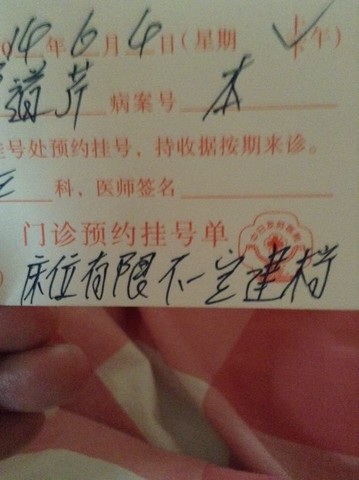 014年6月4日（星期 上下午）
芹 病案号 本
挂号处预约挂号，持收据按期来诊。
科，医师签名
门诊预约挂号单
床位有限不一定建档